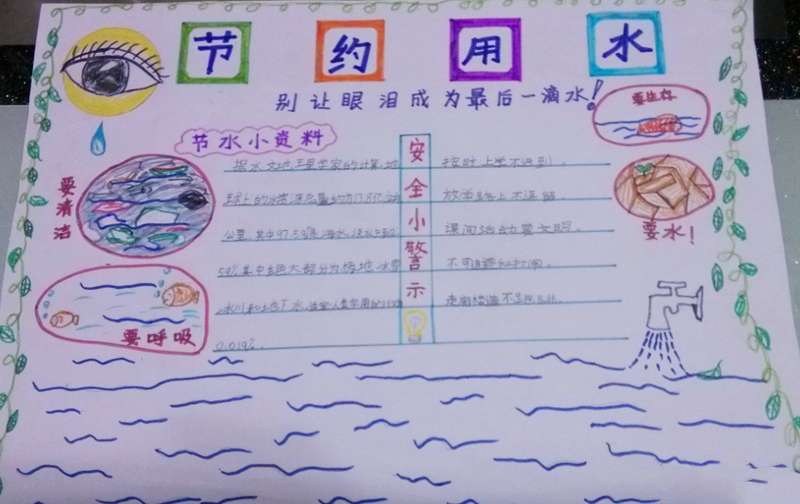 节约用水
别让眼泪成为最后一滴水!
要生存
节水小资料
安全小警示
据水文地理学家的计算,地
球上的水资源总量约为13.8亿立方
公里,其中97.5%是海水,淡水只占
其中绝大部分为极地冰雪
冰川和地下水,
0.01%。
按时上学不迟到。
放学路上不逗留。
课间活动要文明。
不可追逐和打闹。
走廊楼道不
要清洁
要水!
要呼吸